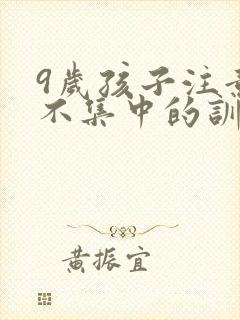 9歲孩子注意
不集中的訓
黃振宜